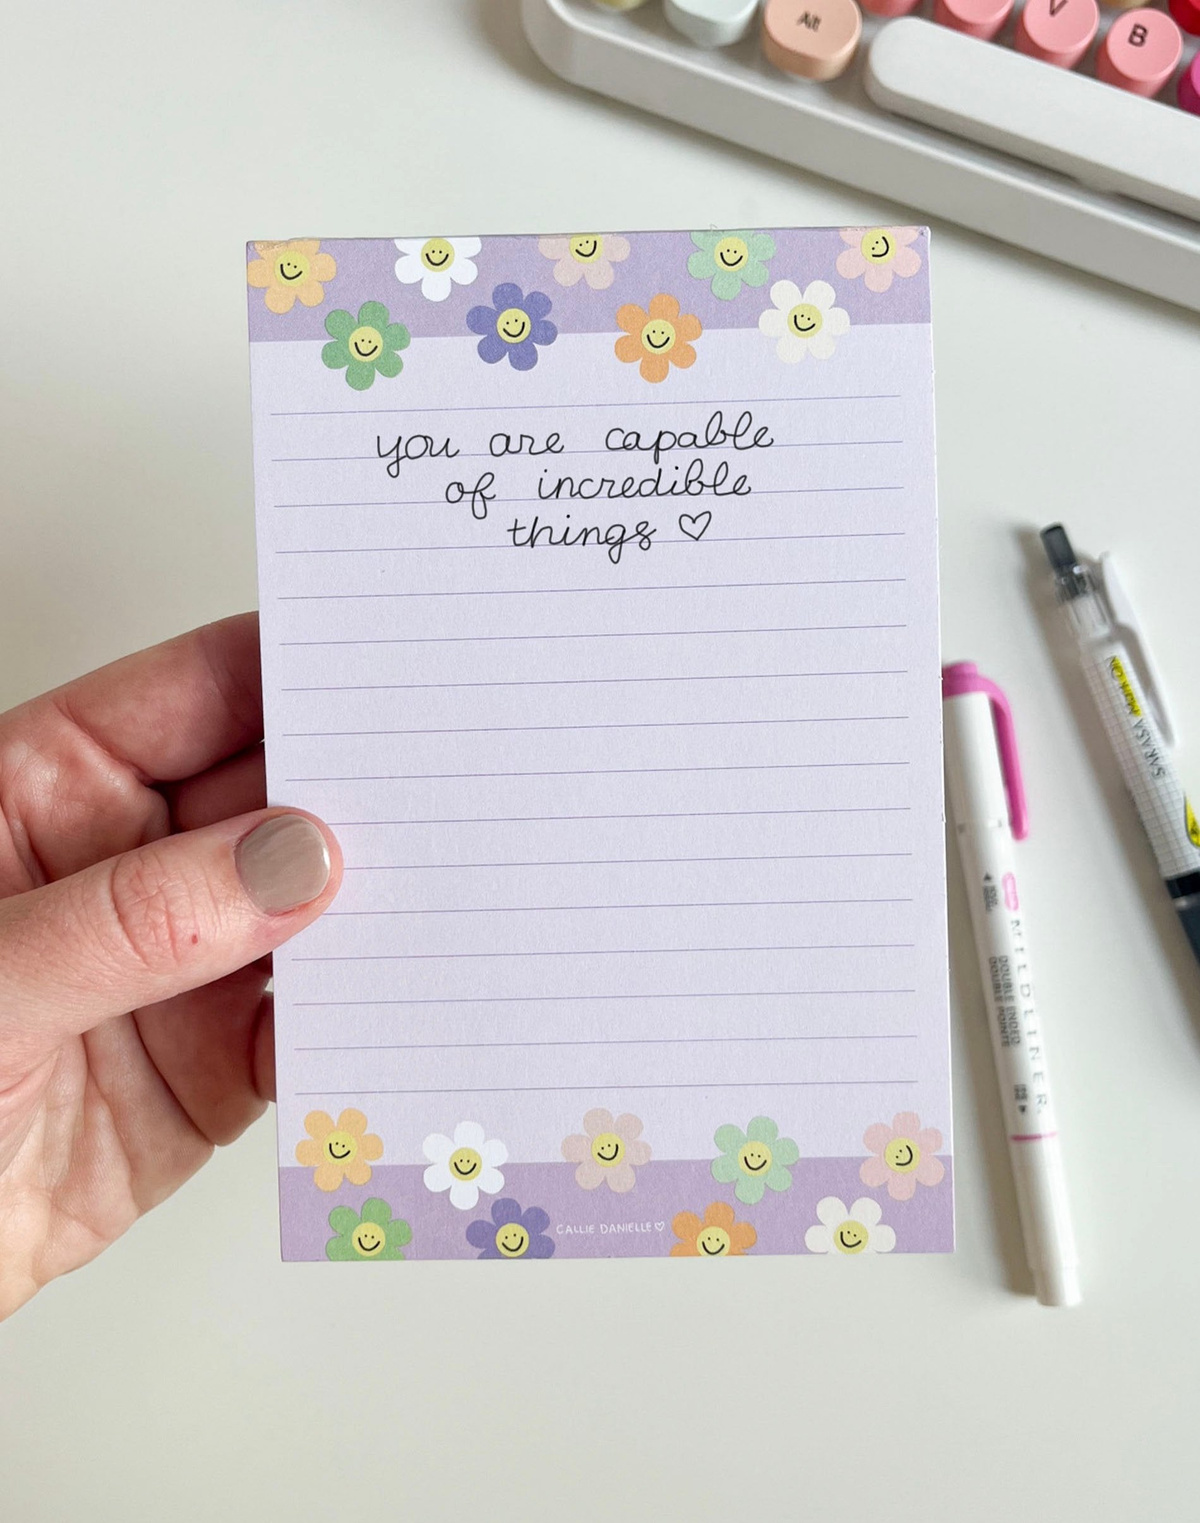 Alt
V
B
you are capable
of incredible
things ♡
Mark On
SARASA
MILDLINER
DOUBLE ENDED
DOUBLE POINTE
CALLIE DANIELLE♡